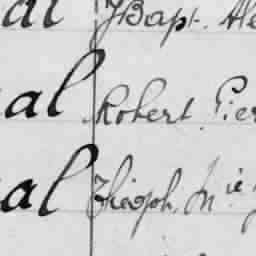 al JBapt. Ale
al Robert Pier
al Théoph. Mie